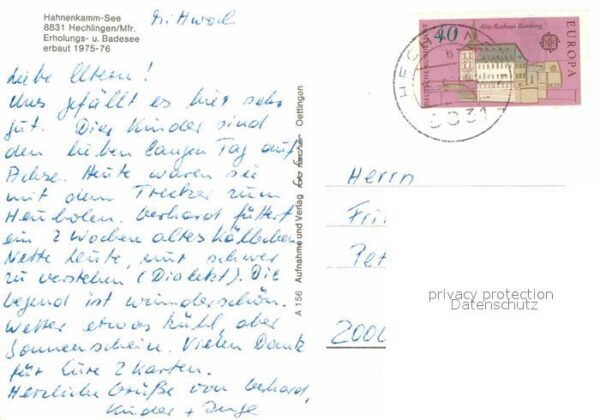 Hahnenkamm-See
8831 Hechlingen/Mfr.
Erholungs- u. Badesee
erbaut 1975-76
Mittwoch
Liebe Eltern!
Uns gefällt es hier sehr
gut. Die Kinder sind
den lieben langen Tag auf
Achse. Heute waren sie
mit dem Trecker zum
Heuholen. Gerhard füttert
ein 2 Wochen altes Kälbchen.
Nette Leute, nur schwer
zu verstehen (Dialekt). Die
Gegend ist wunderschön.
Wetter etwas kühl, aber
Sonnenschein. Vielen Dank
für Eure 2 Karten.
Herzliche Grüße von Gerhard,
Kinder + Inge
A 156 Aufnahme und Verlag Oettingen
Altes Rathaus Bamberg
40
DEUTSCHE BUNDESPOST
EUROPA
CEPT
Herrn
Pet
2000
privacy protection
Datenschutz